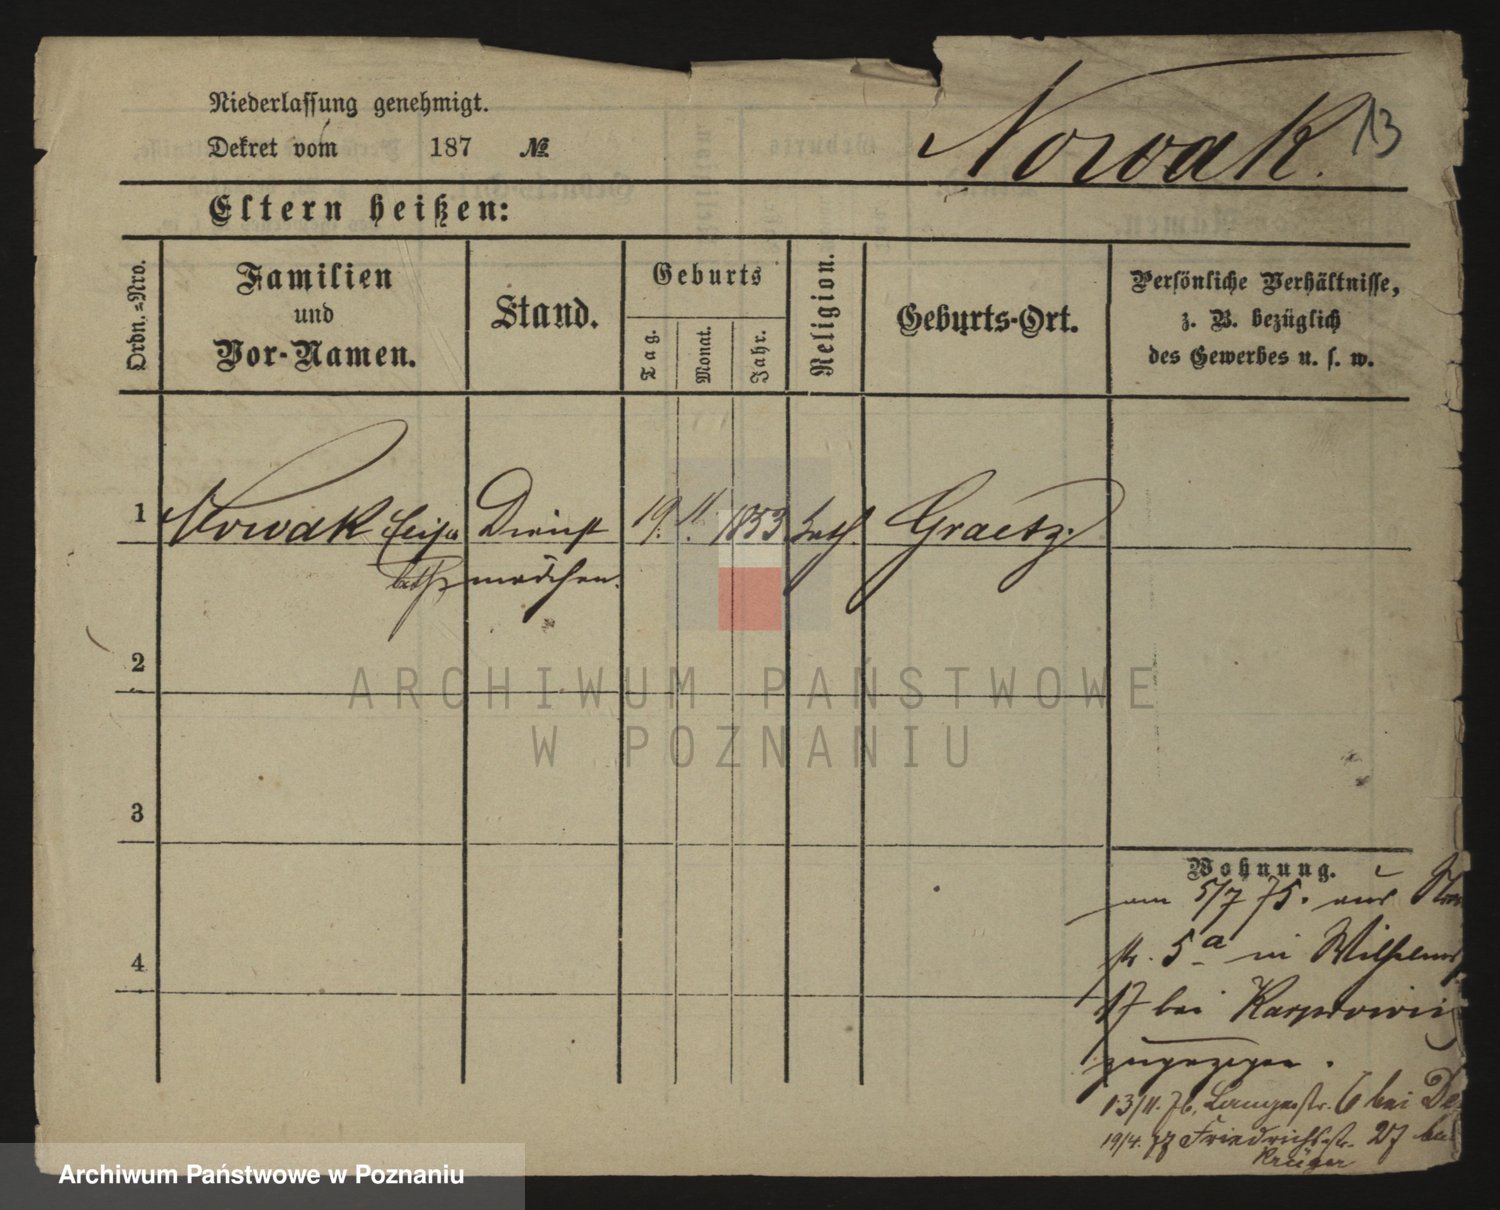 Niederlassung genehmigt.
Nowak. 13
Dekret vom 187 №
Eltern heißen:
Ordn.-Nro.
Familien
und
Vor-Namen.
Stand.
Geburts
Tag.
Monat.
Jahr.
Religion.
Geburts-Ort.
Persönliche Verhältnisse,
z. B. bezüglich
des Gewerbes u. s. w.
1 Nowak Dienst 19. 11. 1853 kath. Graetz.
mädchen.
2
3
4
Wohnung.
am 5/7 75. aus
str. 5a in Wilhelms
17 bei
zugezogen.
13/11. 76. Langestr. 6 bei
19/4. 77 Friedrichstr. 27 bei
Krüger
ARCHIWUM PAŃSTWOWE
W POZNANIU
Archiwum Państwowe w Poznaniu